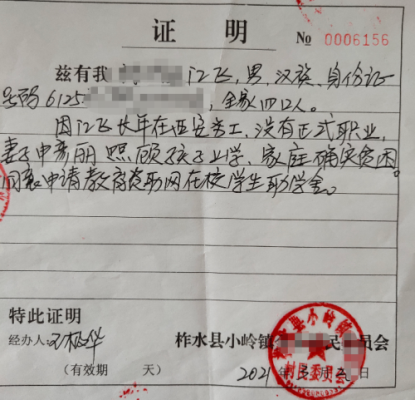 证 明
No 0006156
兹有我 江飞，男，汉族，身份证
号码 6125 ，全家四口人。
因江飞长年在西安务工，没有正式职业，
妻子申彦丽照顾孩子上学、家庭确实贫困。
同意申请教育资助网在校学生助学金。
特此证明
经办人：
柞水县小岭镇 民 员会
（有效期 天） 2021年 月 日
村民委员会